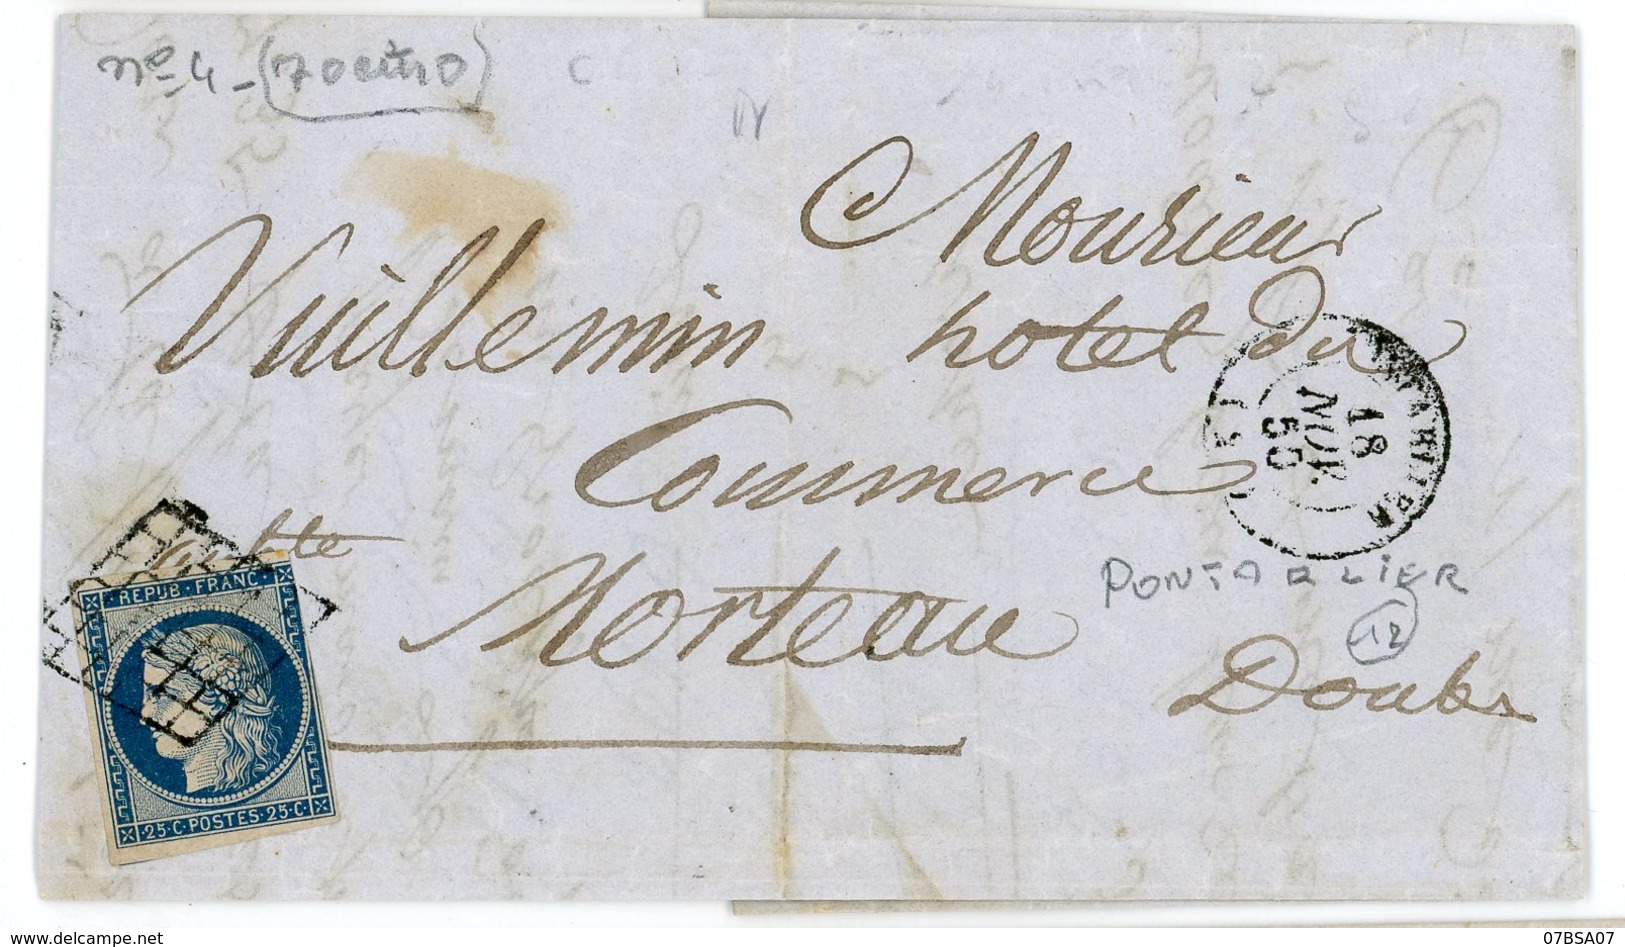 n° 4 - (70 euro)
Monsieur
Vuillemin hotel du
Commerce
Morteau
Doubs
PONTARLIER
18
NOV.
50
PONTARLIER
12
REPUB · FRANC
25 · C · POSTES · 25 · C
www.delcampe.net
07BSA07